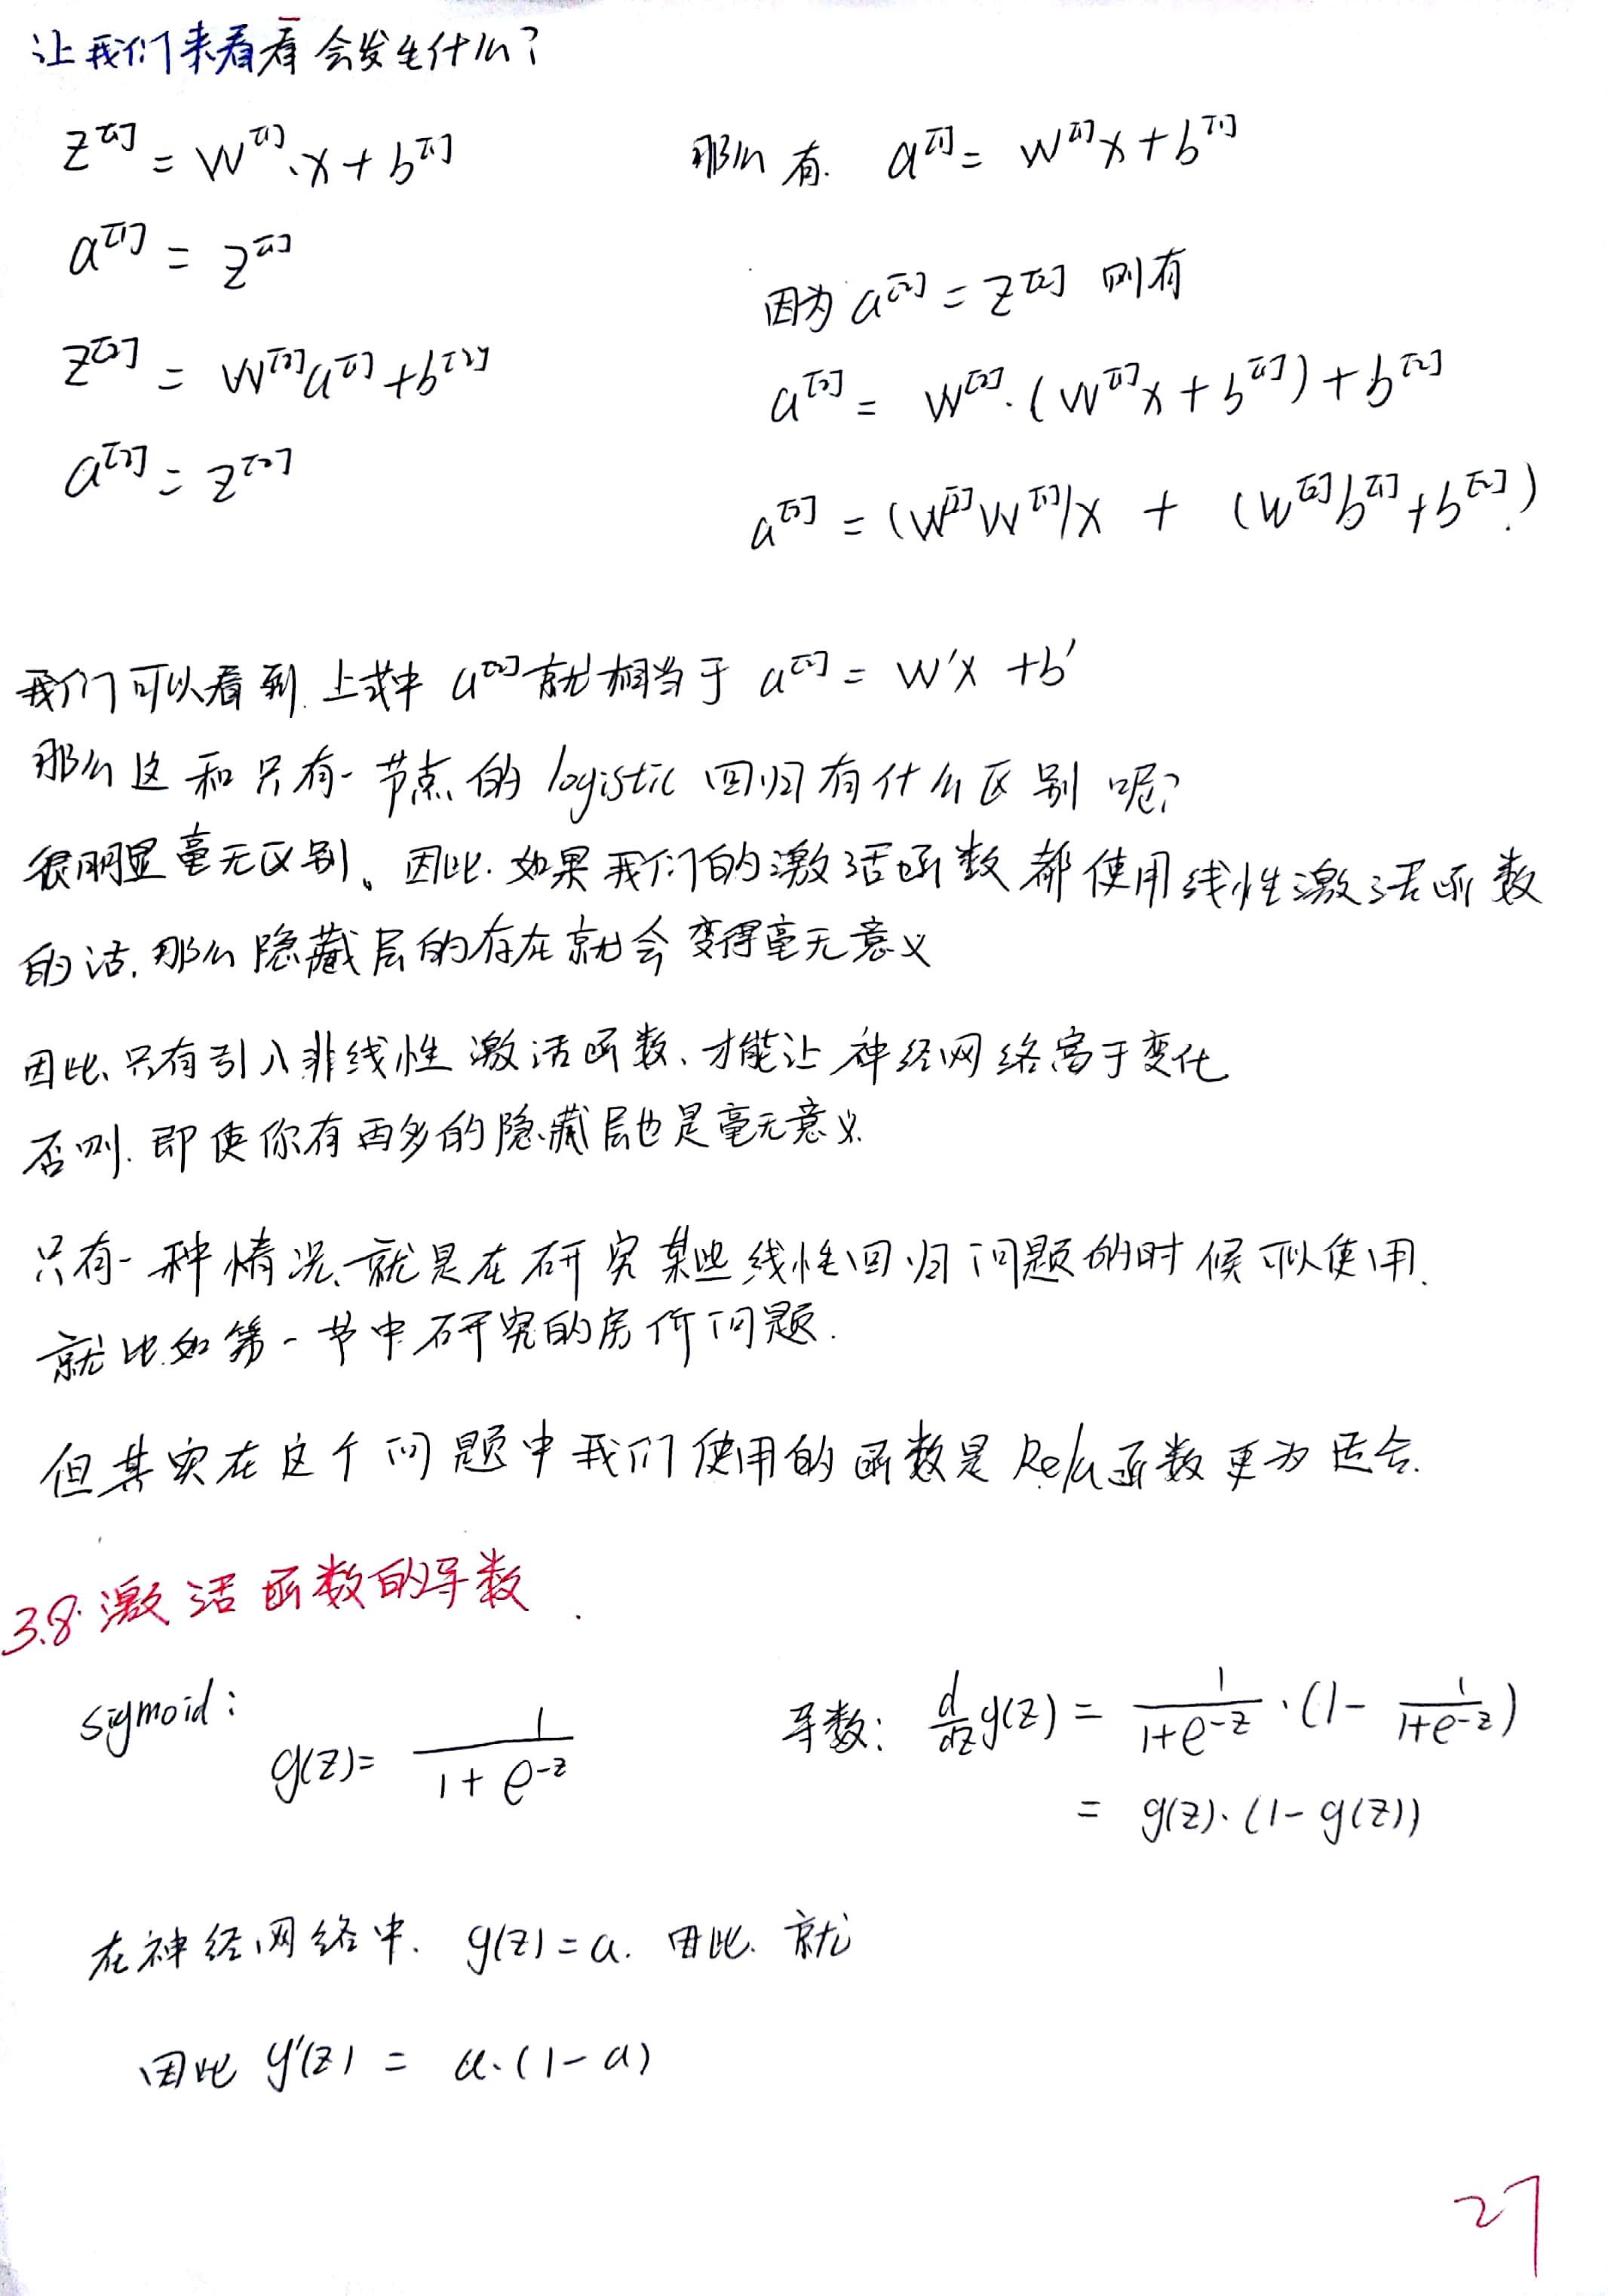 让我们来看看会发生什么?
z^[1] = W^[1]·x + b^[1]
a^[1] = z^[1]
z^[2] = W^[2]a^[1] + b^[2]
a^[2] = z^[2]
那么有. a^[1] = W^[1]x + b^[1]
因为 a^[2] = z^[2] 则有
a^[2] = W^[2]·(W^[1]x + b^[1]) + b^[2]
a^[2] = (W^[2]W^[1])x + (W^[2]b^[1] + b^[2])
我们可以看到.上式中 a^[2]就相当于 a^[2] = W'x + b'
那么这和只有一节点的 logistic 回归有什么区别呢?
很明显毫无区别。因此.如果我们的激活函数都使用线性激活函数
的话,那么隐藏层的存在就会变得毫无意义
因此、只有引入非线性激活函数、才能让神经网络富于变化
否则.即使你有再多的隐藏层也是毫无意义.
只有一种情况、就是在研究某些线性回归问题的时候可以使用.
就比如第一节中研究的房价问题.
但其实在这个问题中我们使用的函数是Relu函数更为适合.
3.8.激活函数的导数
sigmoid:
g(z) = 1/(1 + e^-z)
导数: d/dz g(z) = 1/(1+e^-z)·(1 - 1/(1+e^-z))
= g(z)·(1 - g(z))
在神经网络中. g(z) = a. 因此. 就
因此 g'(z) = a·(1 - a)
27